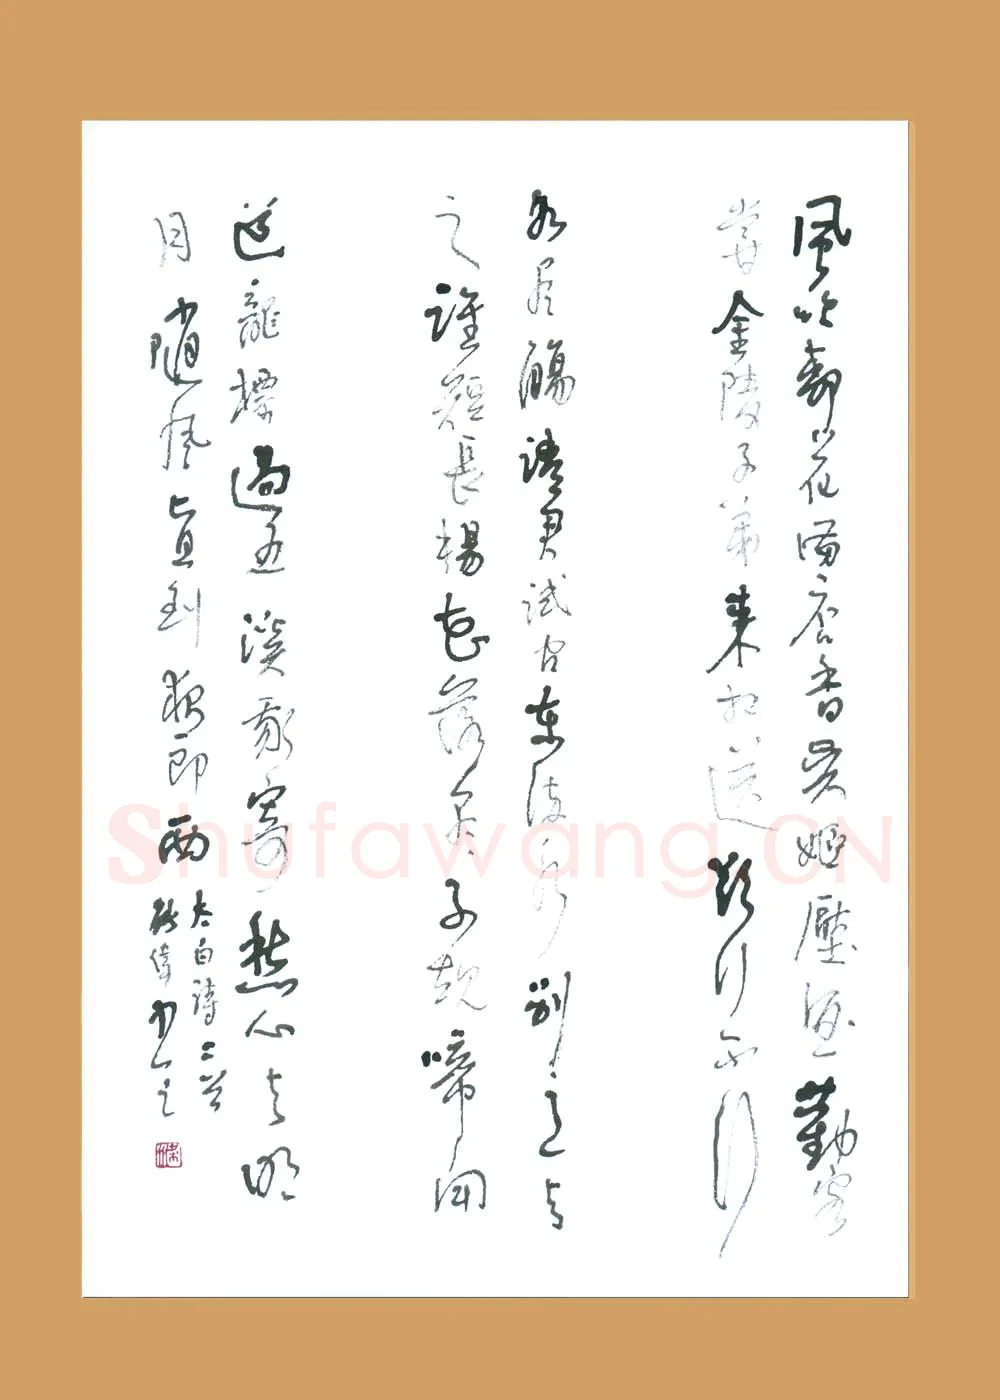 風吹柳花滿店香吳姬壓酒勸客
嘗金陵子弟來相送欲行不行
各盡觴請君試問東流水別意與
之誰短長楊花落盡子規啼聞
道龍標過五溪我寄愁心與明
月隨風直到夜郎西
太白詩二首
Shufawang.CN